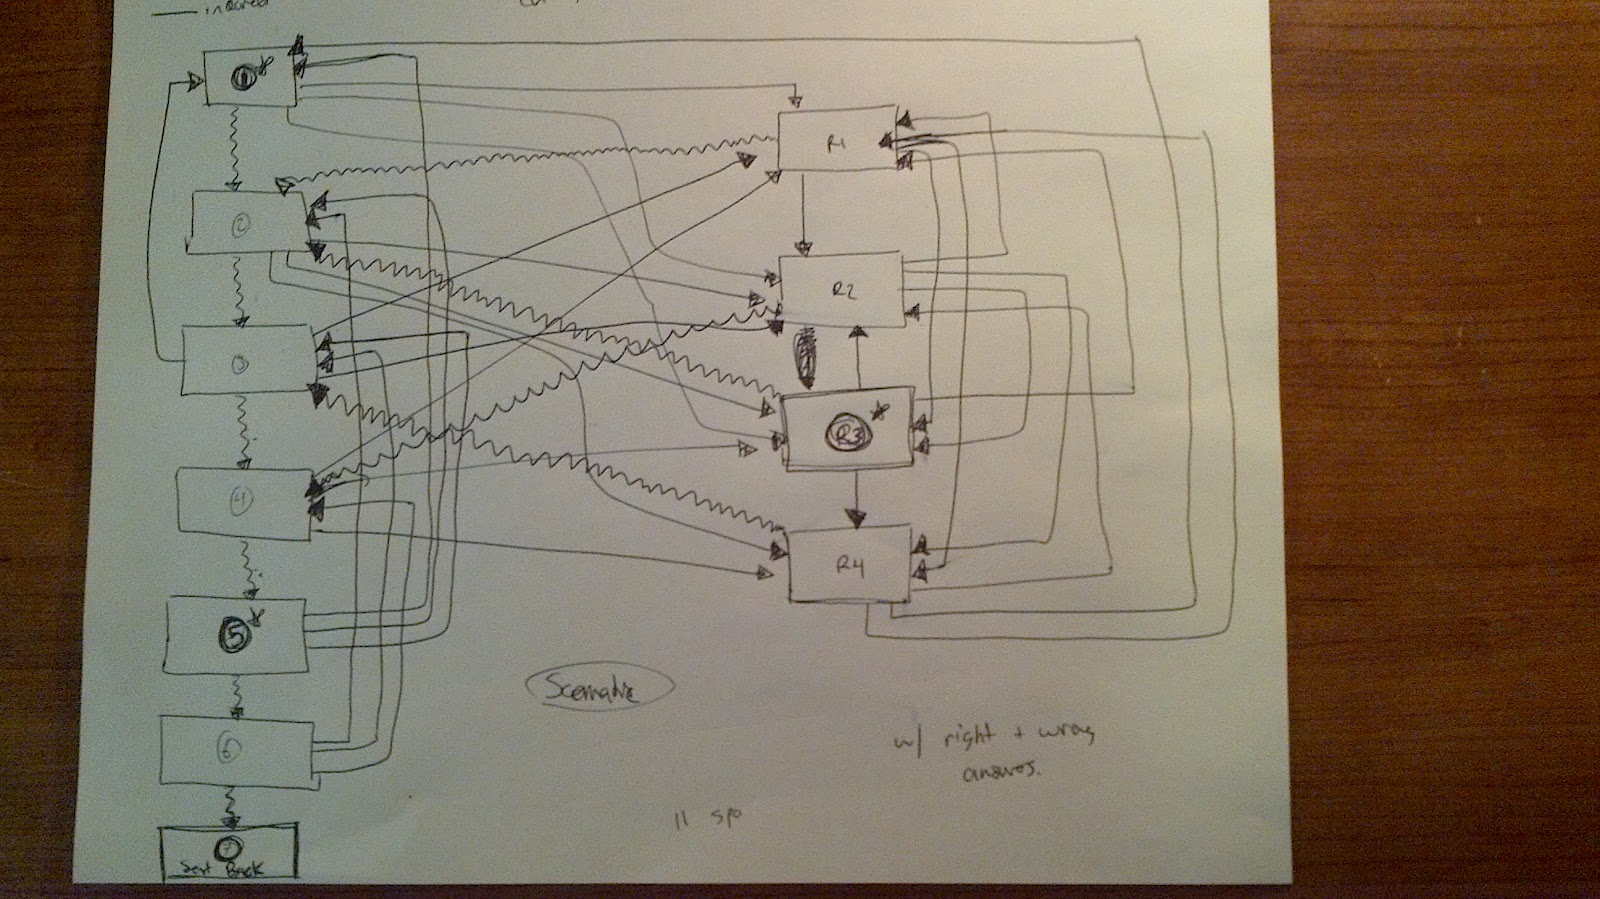 1*
R1
2
R2
3
R3*
4
R4
5*
Scematic
6
w/ right + wrong
answers.
11 spo
7
Sent Back